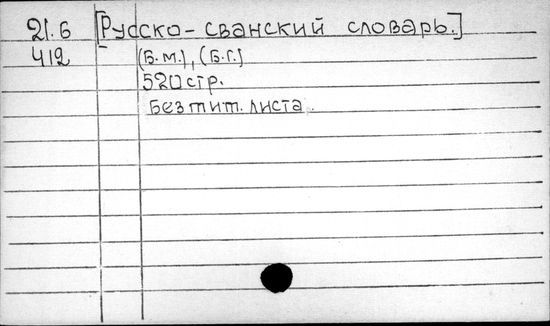 21.6 [Русско-сванский словарь.]
412 (Б.м.), (Б.г.)
520 стр.
Без тит. листа.